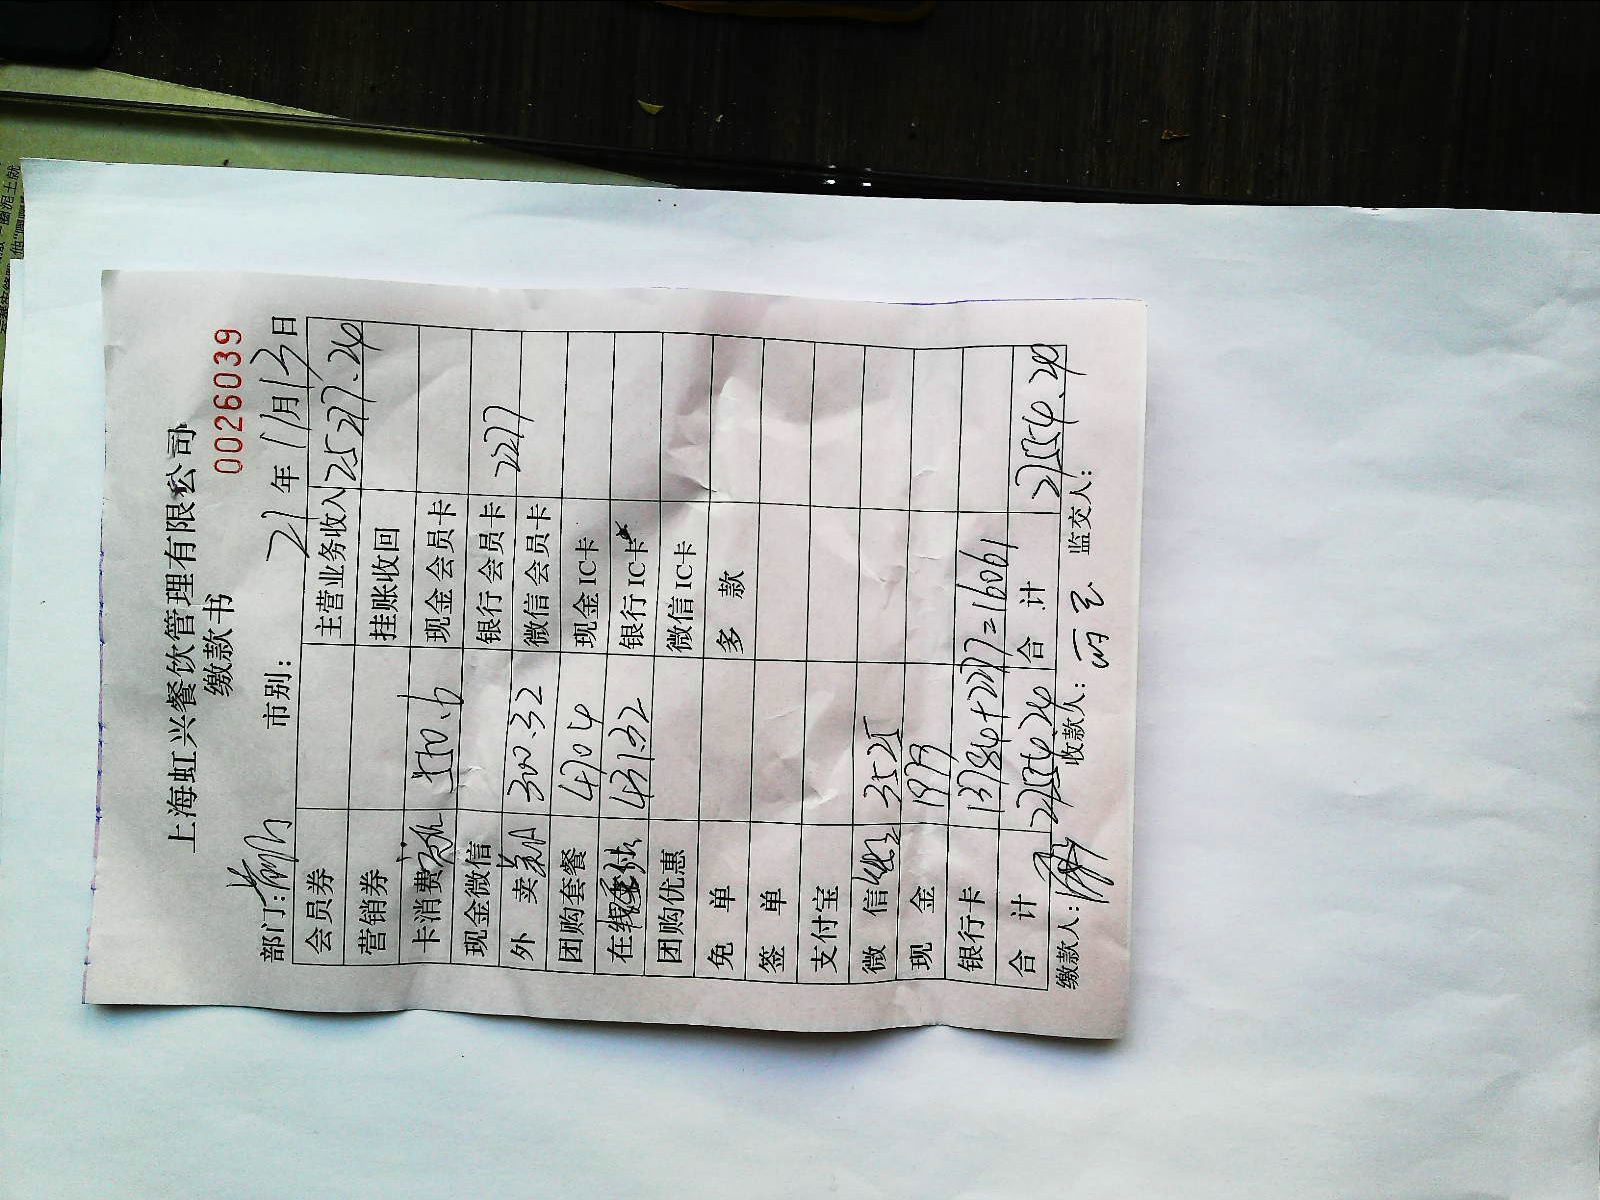 上海虹兴餐饮管理有限公司
缴款书
0026039
部门: 市别: 21年11月13日
会员券 主营业务收入 25327.24
营销券 挂账收回
卡消费 530.6 现金会员卡
现金微信 银行会员卡
外 卖 美团 300.32 微信会员卡 2227
团购套餐 4704 现金IC卡
在线 431.32 银行IC卡
团购优惠 微信IC卡
免 单 多 款
签 单
支付宝
微 信 3525
现 金 1973
银行卡 13784+2277=16061
合 计 27554.24 合 计 27554.24
缴款人: 收款人: 监交人: